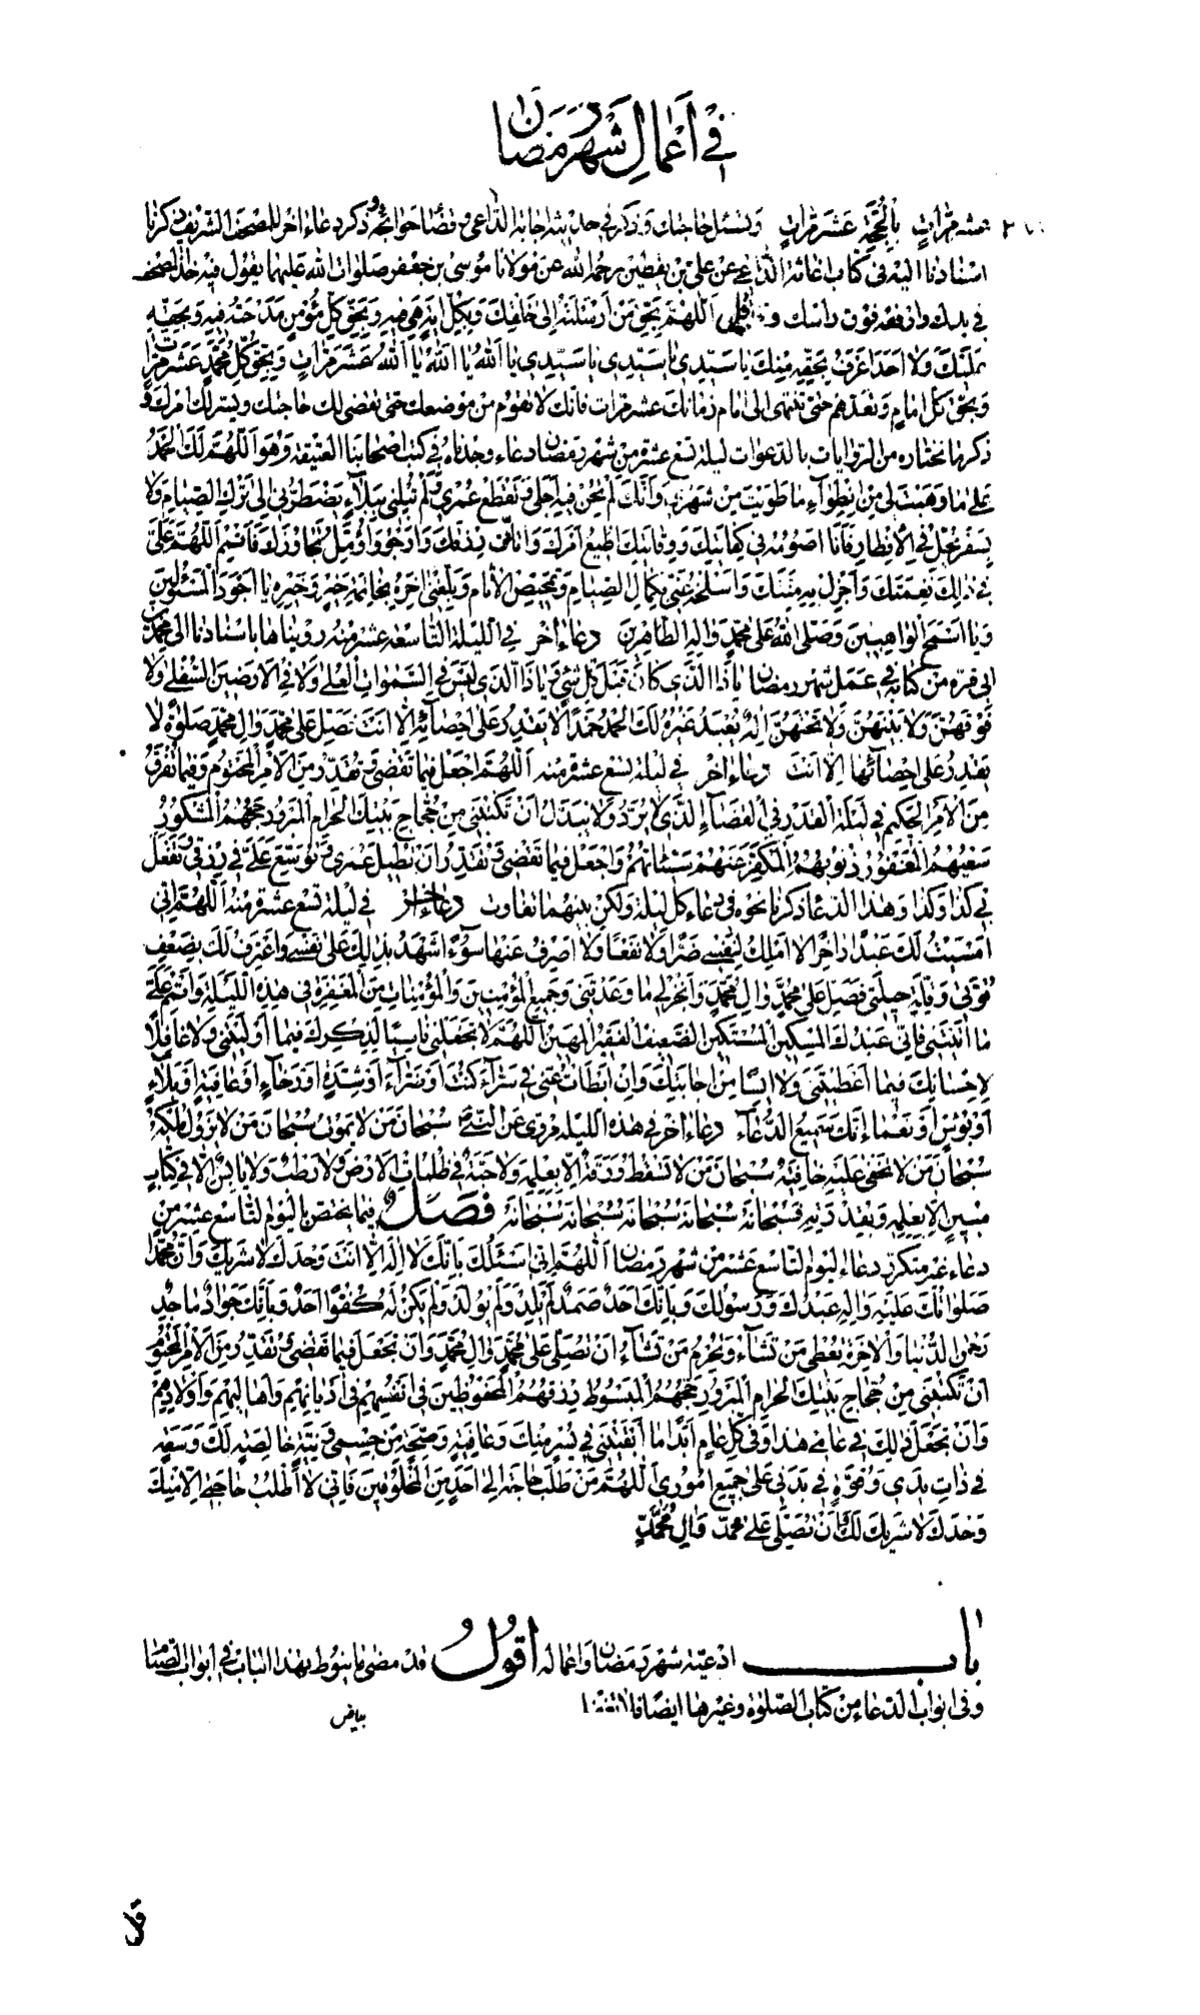 في أعمال شهر رمضان
عشر مرات بالحجة عشر مرات وتسئل حاجتك وذكر في حديثه اجابة الداعي وقضاء حوائجه ذكر دعاء اخر للمصحف الشريف ذكرنا
اسنادنا اليه في كتاب اغاثة الداعي عن علي بن يقطين رحمه الله عن مولانا موسى بن جعفر صلوات الله عليهما يقول فيه خذ المصحف
في يدك وارفعه فوق راسك وقل اللهم بحق من ارسلته الى خلقك وبكل اية هي فيه وبحق كل مؤمن مدحته فيه وبحقه
عليك ولا احد اعرف بحقه منك يا سيدي يا سيدي يا سيدي يا الله يا الله يا الله عشر مرات وبحق كل محمد عشر مرات
وبحق كل امام وتعدهم حتى تنتهي الى امام زمانك عشر مرات فانك لا تقوم من موضعك حتى تقضى لك حاجتك وييسر لك امرك و
ذكر ما نختاره من الروايات بالدعوات ليلة تسع عشرة من شهر رمضان دعاء وجدناه في كتب اصحابنا العتيقة وهو اللهم لك الحمد
على ما وهبت لي من انطواء ما طويت من شهري وانك لم تحن فيه اجلي ولم تقطع عمري ولم تبلني ببلاء يضطرني الى ترك الصيام ولا
بسفر يحل لي الافطار فانا اصومه في كفايتك ووقايتك اطيع امرك واقتات رزقك وارجو واؤمل تجاوزك فاتمم اللهم علي
في ذلك نعمتك واجزل به منتك واسلخه عني بكمال الصيام وتمحيص الاثام وبلغني اخره بخاتمة خير وخيره يا اجود المسئولين
ويا اسمح الواهبين وصلى الله على محمد واله الطاهرين دعاء اخر في الليلة التاسعة عشر منه رويناها باسنادنا الى محمد بن
ابي قرة من كتابه في عمل شهر رمضان يا ذا الذي كان قبل كل شيء ويا ذا الذي ليس في السموات العلى ولا في الارضين السفلى ولا
فوقهن ولا بينهن ولا تحتهن اله يعبد غيره لك الحمد حمدا لا يقدر على احصائه الا انت فصل على محمد وال محمد صلوة لا
يقدر على احصائها الا انت دعاء اخر في ليلة تسع عشرة منه اللهم اجعل فيما تقضي وتقدر من الامر المحتوم وفيما تفرق
من الامر الحكيم في ليلة القدر في القضاء الذي لا يرد ولا يبدل ان تكتبني من حجاج بيتك الحرام المبرور حجهم المشكور
سعيهم المغفور ذنوبهم المكفر عنهم سيئاتهم واجعل فيما تقضي وتقدر ان تطيل عمري وتوسع علي في رزقي وتفعل
بي كذا وكذا وهذا الدعاء ذكرنا نحوه في دعاء كل ليلة ولكن بينهما تفاوت دعاء اخر في ليلة تسع عشرة منه اللهم اني
امسيت لك عبدا داخرا لا املك لنفسي ضرا ولا نفعا ولا اصرف عنها سوءا اشهد بذلك على نفسي واعترف لك بضعف
قوتي وقلة حيلتي فصل على محمد وال محمد وانجز لي ما وعدتني وجميع المؤمنين والمؤمنات من المغفرة في هذه الليلة واتمم علي
ما اتيتني فاني عبدك المسكين المستكين الضعيف الفقير المهين اللهم لا تجعلني ناسيا لذكرك فيما اوليتني ولا غافلا
لاحسانك فيما اعطيتني ولا ايسا من اجابتك وان ابطات عني في سراء كنت او ضراء او شدة او رخاء او عافية او بلاء
او بؤس او نعماء انك سميع الدعاء دعاء اخر في هذه الليلة مروي عن النبي سبحان من لا يموت سبحان من لا يزول ملكه
سبحان من لا تخفى عليه خافية سبحان من لا تسقط ورقة الا بعلمه ولا حبة في ظلمات الارض ولا رطب ولا يابس الا في كتاب
مبين الا بعلمه وبقدرته فسبحانه سبحانه سبحانه سبحانه سبحانه سبحانه فصل فيما يختص باليوم التاسع عشر من
دعاء غير متكرر دعاء اليوم التاسع عشر من شهر رمضان اللهم اني اسئلك بانك لا اله الا انت وحدك لا شريك لك وان محمدا
صلواتك عليه واله عبدك ورسولك وبانك احد صمد لم يلد ولم يولد ولم يكن له كفوا احد وبانك جواد ماجد
رحمن الدنيا والاخرة تعطي من تشاء وتحرم من تشاء ان تصلي على محمد وال محمد وان تجعل فيما تقضي وتقدر من الامر المحتوم
ان تكتبني من حجاج بيتك الحرام المبرور حجهم المبسوط رزقهم المحفوظين في انفسهم في اديانهم واهاليهم واولادهم
وان تجعل ذلك في عامي هذا وفي كل عام ابدا ما ابقيتني في يسر منك وعافية وصحة من جسمي ونية خالصة لك وسعة
في ذات يدي وقوة في بدني على جميع اموري اللهم من طلب حاجته الى احد من المخلوقين فاني لا اطلب حاجتي الا منك
وحدك لا شريك لك ان تصلي على محمد وال محمد
باب ادعية شهر رمضان واعماله اقول قد مضى ما ينوط بهذا الباب في ابواب الصيام
وفي ابواب الدعاء من كتاب الصلوة وغيرها ايضا
بياض
قل